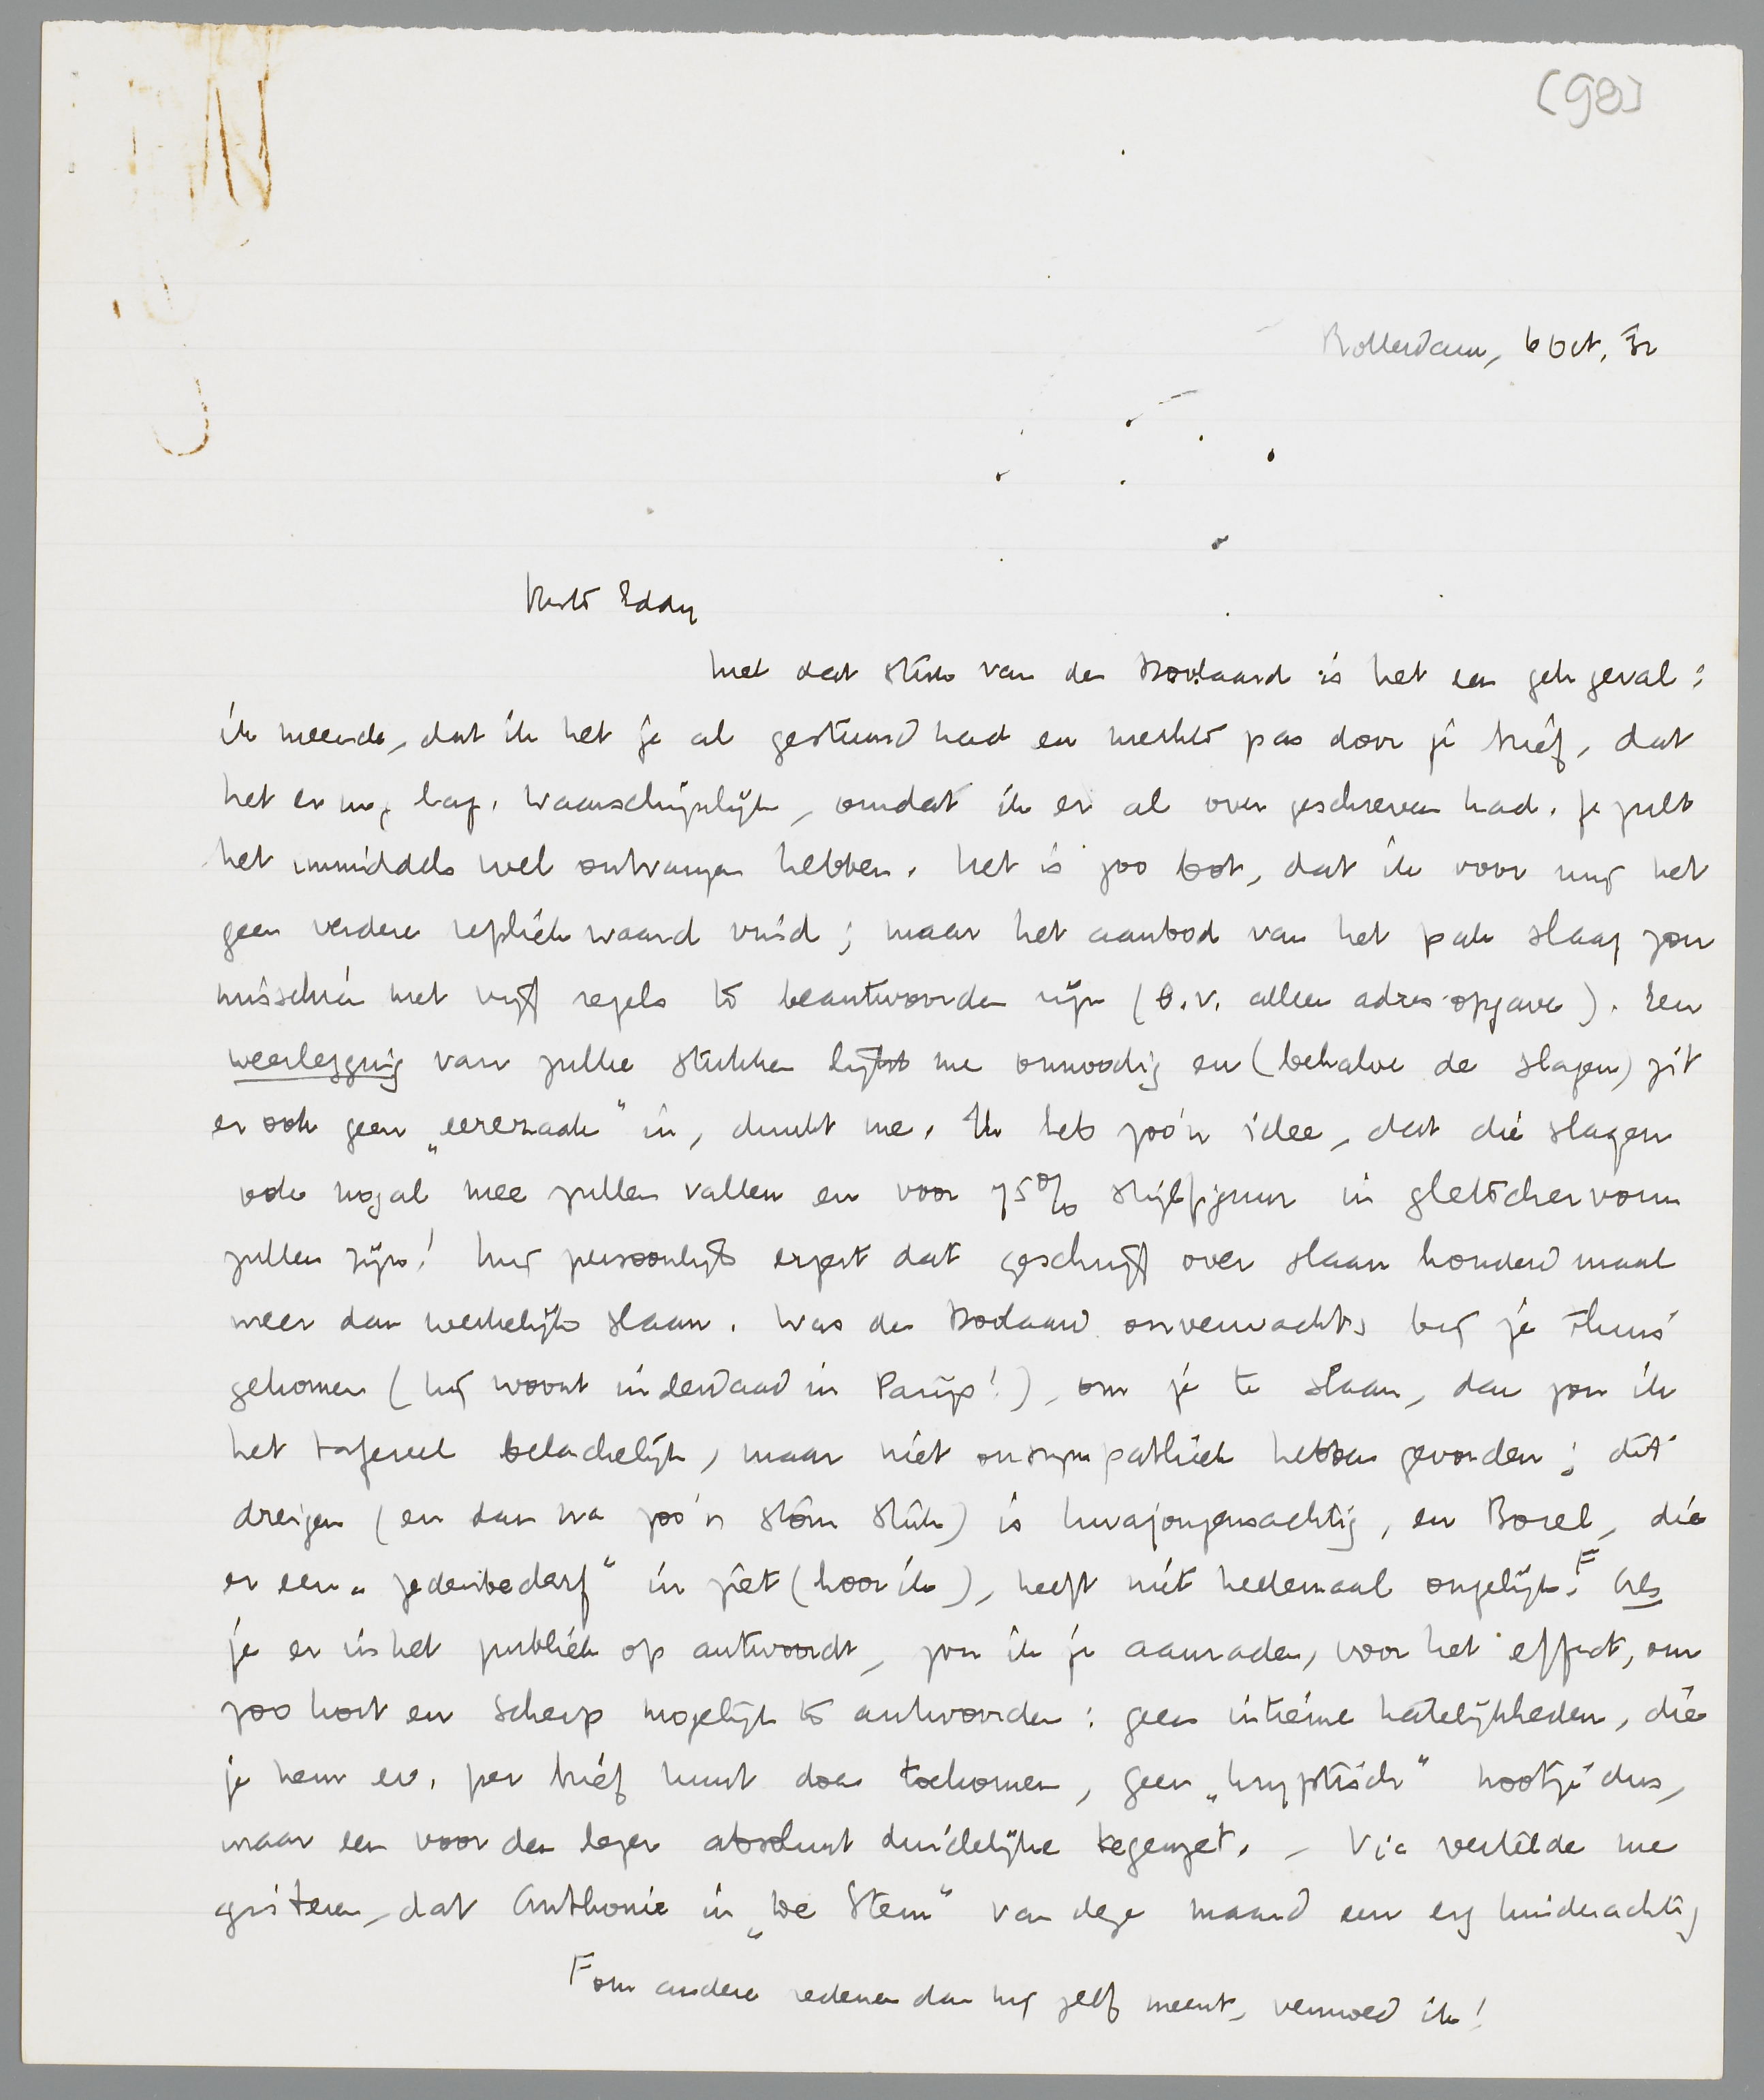 [98]
Rotterdam, 6 Oct. '32
Beste Eddy
Met dat stuk van den Doolaard is het een gek geval:
ik meende, dat ik het je al gestuurd had en merkte pas door je brief, dat
het er nog lag. Waarschijnlijk, omdat ik er al over geschreven had. Je zult
het inmiddels wel ontvangen hebben. Het is zoo bot, dat ik voor mij het
geen verdere repliek waard vind; maar het aanbod van het pak slaag zou
misschien met vijf regels te beantwoorden zijn (b.v. alleen adres-opgave). Een
weerlegging van zulke stukken lijkt me onnoodig en (behalve de slagen) zit
er ook geen „eerezaak" in, dunkt me. Ik heb zoo'n idee, dat die slagen
ook nogal mee zullen vallen en voor 75% stijlfiguur in gletschervorm
zullen zijn! Mij persoonlijk ergert dat geschrijf over slaan honderd maal
meer dan werkelijk slaan. Was den Doolaard onverwachts bij je thuis
gekomen (hij woont inderdaad in Parijs!), om je te slaan, dan zou ik
het tafereel belachelijk, maar niet onsympathiek hebben gevonden; dit
dreigen (en dan na zoo'n stom stuk) is kwajongensachtig, en Borel, die
er een „zedenbederf" in ziet (hoor ik), heeft niet heelemaal ongelijk. F Als
je er in het publiek op antwoordt, zou ik je aanraden, voor het effect, om
zoo kort en scherp mogelijk te antwoorden: geen intieme hatelijkheden, die
je hem ev. per brief kunt doen toekomen, geen „kryptisch" nootje dus,
maar een voor den lezer absoluut duidelijke tegenzet. – Vic vertelde me
gisteren, dat Anthonie in „De Stem" van deze maand een erg kinderachtig
F om andere redenen dan hij zelf meent, vermoed ik!